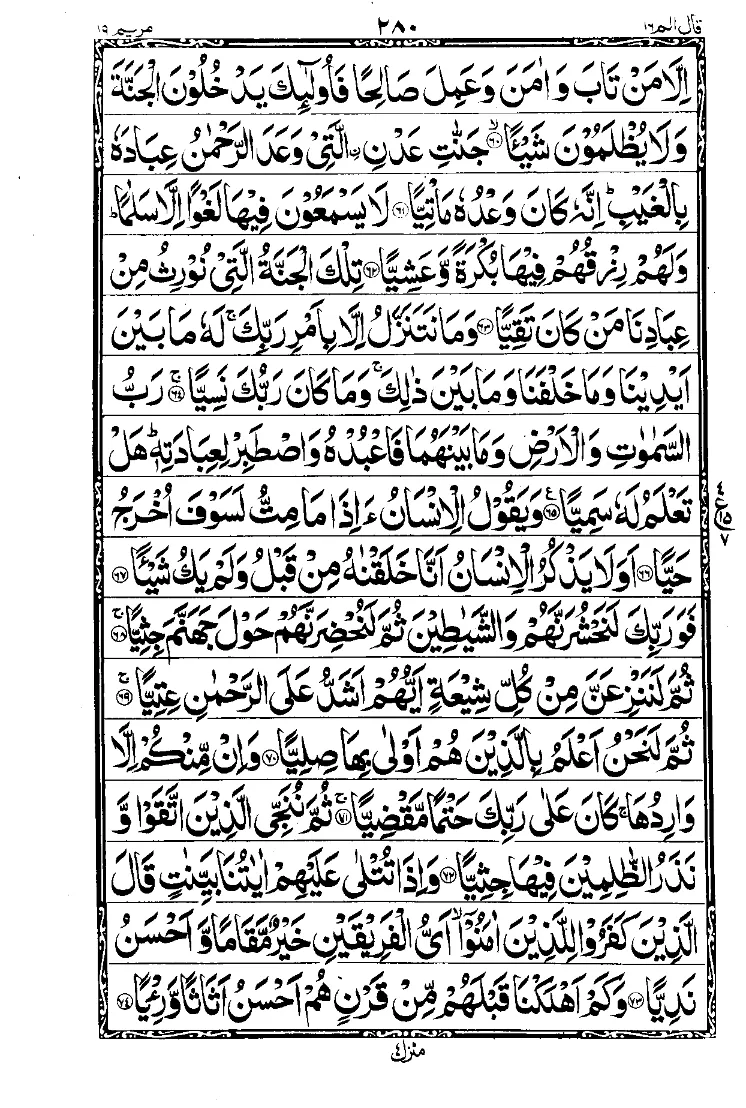 قال الم ١٦
٢٨٠
مريم ١٩
اِلَّا مَنْ تَابَ وَ اٰمَنَ وَ عَمِلَ صَالِحًا فَاُولٰٓئِكَ يَدْخُلُوْنَ الْجَنَّةَ
وَلَا يُظْلَمُوْنَ شَيْـًٔا ۙ﴿۶۰﴾ جَنّٰتِ عَدْنِ ۨ الَّتِىْ وَعَدَ الرَّحْمٰنُ عِبَادَهٗ
بِالْغَيْبِ ؕ اِنَّهٗ كَانَ وَعْدُهٗ مَاْتِيًّا ﴿۶۱﴾ لَا يَسْمَعُوْنَ فِيْهَا لَغْوًا اِلَّا سَلٰمًا ؕ
وَلَهُمْ رِزْقُهُمْ فِيْهَا بُكْرَةً وَّعَشِيًّا ﴿۶۲﴾ تِلْكَ الْجَنَّةُ الَّتِىْ نُوْرِثُ مِنْ
عِبَادِنَا مَنْ كَانَ تَقِيًّا ﴿۶۳﴾ وَمَا نَتَنَزَّلُ اِلَّا بِاَمْرِ رَبِّكَ ۚ لَهٗ مَا بَيْنَ
اَيْدِيْنَا وَمَا خَلْفَنَا وَمَا بَيْنَ ذٰلِكَ ۚ وَمَا كَانَ رَبُّكَ نَسِيًّا ۚ﴿۶۴﴾ رَبُّ
السَّمٰوٰتِ وَالْاَرْضِ وَمَا بَيْنَهُمَا فَاعْبُدْهُ وَاصْطَبِرْ لِعِبَادَتِهٖ ؕ هَلْ
تَعْلَمُ لَهٗ سَمِيًّا ﴿۶۵﴾ ع وَيَقُوْلُ الْاِنْسَانُ ءَاِذَا مَا مِتُّ لَسَوْفَ اُخْرَجُ
٤ ع ١٥ ٧
حَيًّا ﴿۶۶﴾ اَوَلَا يَذْكُرُ الْاِنْسَانُ اَنَّا خَلَقْنٰهُ مِنْ قَبْلُ وَلَمْ يَكُ شَيْـًٔا ﴿۶۷﴾
فَوَرَبِّكَ لَنَحْشُرَنَّهُمْ وَالشَّيٰطِيْنَ ثُمَّ لَنُحْضِرَنَّهُمْ حَوْلَ جَهَنَّمَ جِثِيًّا ۚ﴿۶۸﴾
ثُمَّ لَنَنْزِعَنَّ مِنْ كُلِّ شِيْعَةٍ اَيُّهُمْ اَشَدُّ عَلَى الرَّحْمٰنِ عِتِيًّا ۚ﴿۶۹﴾
ثُمَّ لَنَحْنُ اَعْلَمُ بِالَّذِيْنَ هُمْ اَوْلٰى بِهَا صِلِيًّا ﴿۷۰﴾ وَاِنْ مِّنْكُمْ اِلَّا
وَارِدُهَا ۚ كَانَ عَلٰى رَبِّكَ حَتْمًا مَّقْضِيًّا ۚ﴿۷۱﴾ ثُمَّ نُنَجِّى الَّذِيْنَ اتَّقَوْا وَّ
نَذَرُ الظّٰلِمِيْنَ فِيْهَا جِثِيًّا ﴿۷۲﴾ وَاِذَا تُتْلٰى عَلَيْهِمْ اٰيٰتُنَا بَيِّنٰتٍ قَالَ
الَّذِيْنَ كَفَرُوْا لِلَّذِيْنَ اٰمَنُوْٓا ۙ اَىُّ الْفَرِيْقَيْنِ خَيْرٌ مَّقَامًا وَّ اَحْسَنُ
نَدِيًّا ﴿۷۳﴾ وَكَمْ اَهْلَكْنَا قَبْلَهُمْ مِّنْ قَرْنٍ هُمْ اَحْسَنُ اَثَاثًا وَّرِءْيًا ﴿۷۴﴾
منزل ٤